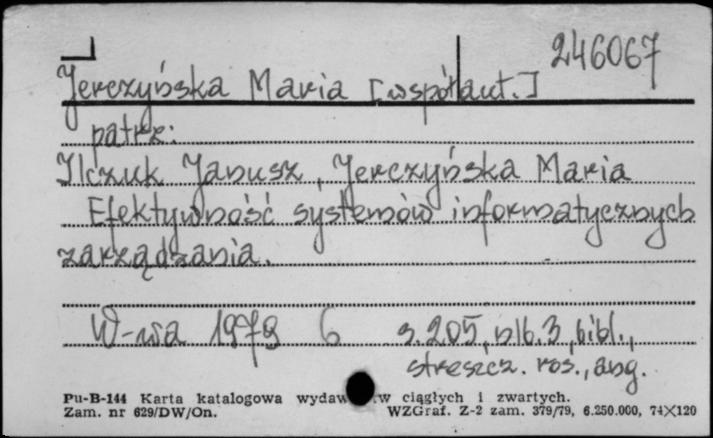 246067
Jerczyńska Maria [współaut.]
patrz:
Ilczuk Janusz, Jerczyńska Maria
Efektywność systemów informatycznych
zarządzania.
W-wa 1979 6 s. 205, nlb. 3, bibl.,
streszcz. ros., ang.
Pu-B-144 Karta katalogowa wydaw w ciągłych i zwartych.
Zam. nr 629/DW/On. WZGraf. Z-2 zam. 379/79, 6.250.000, 74×120